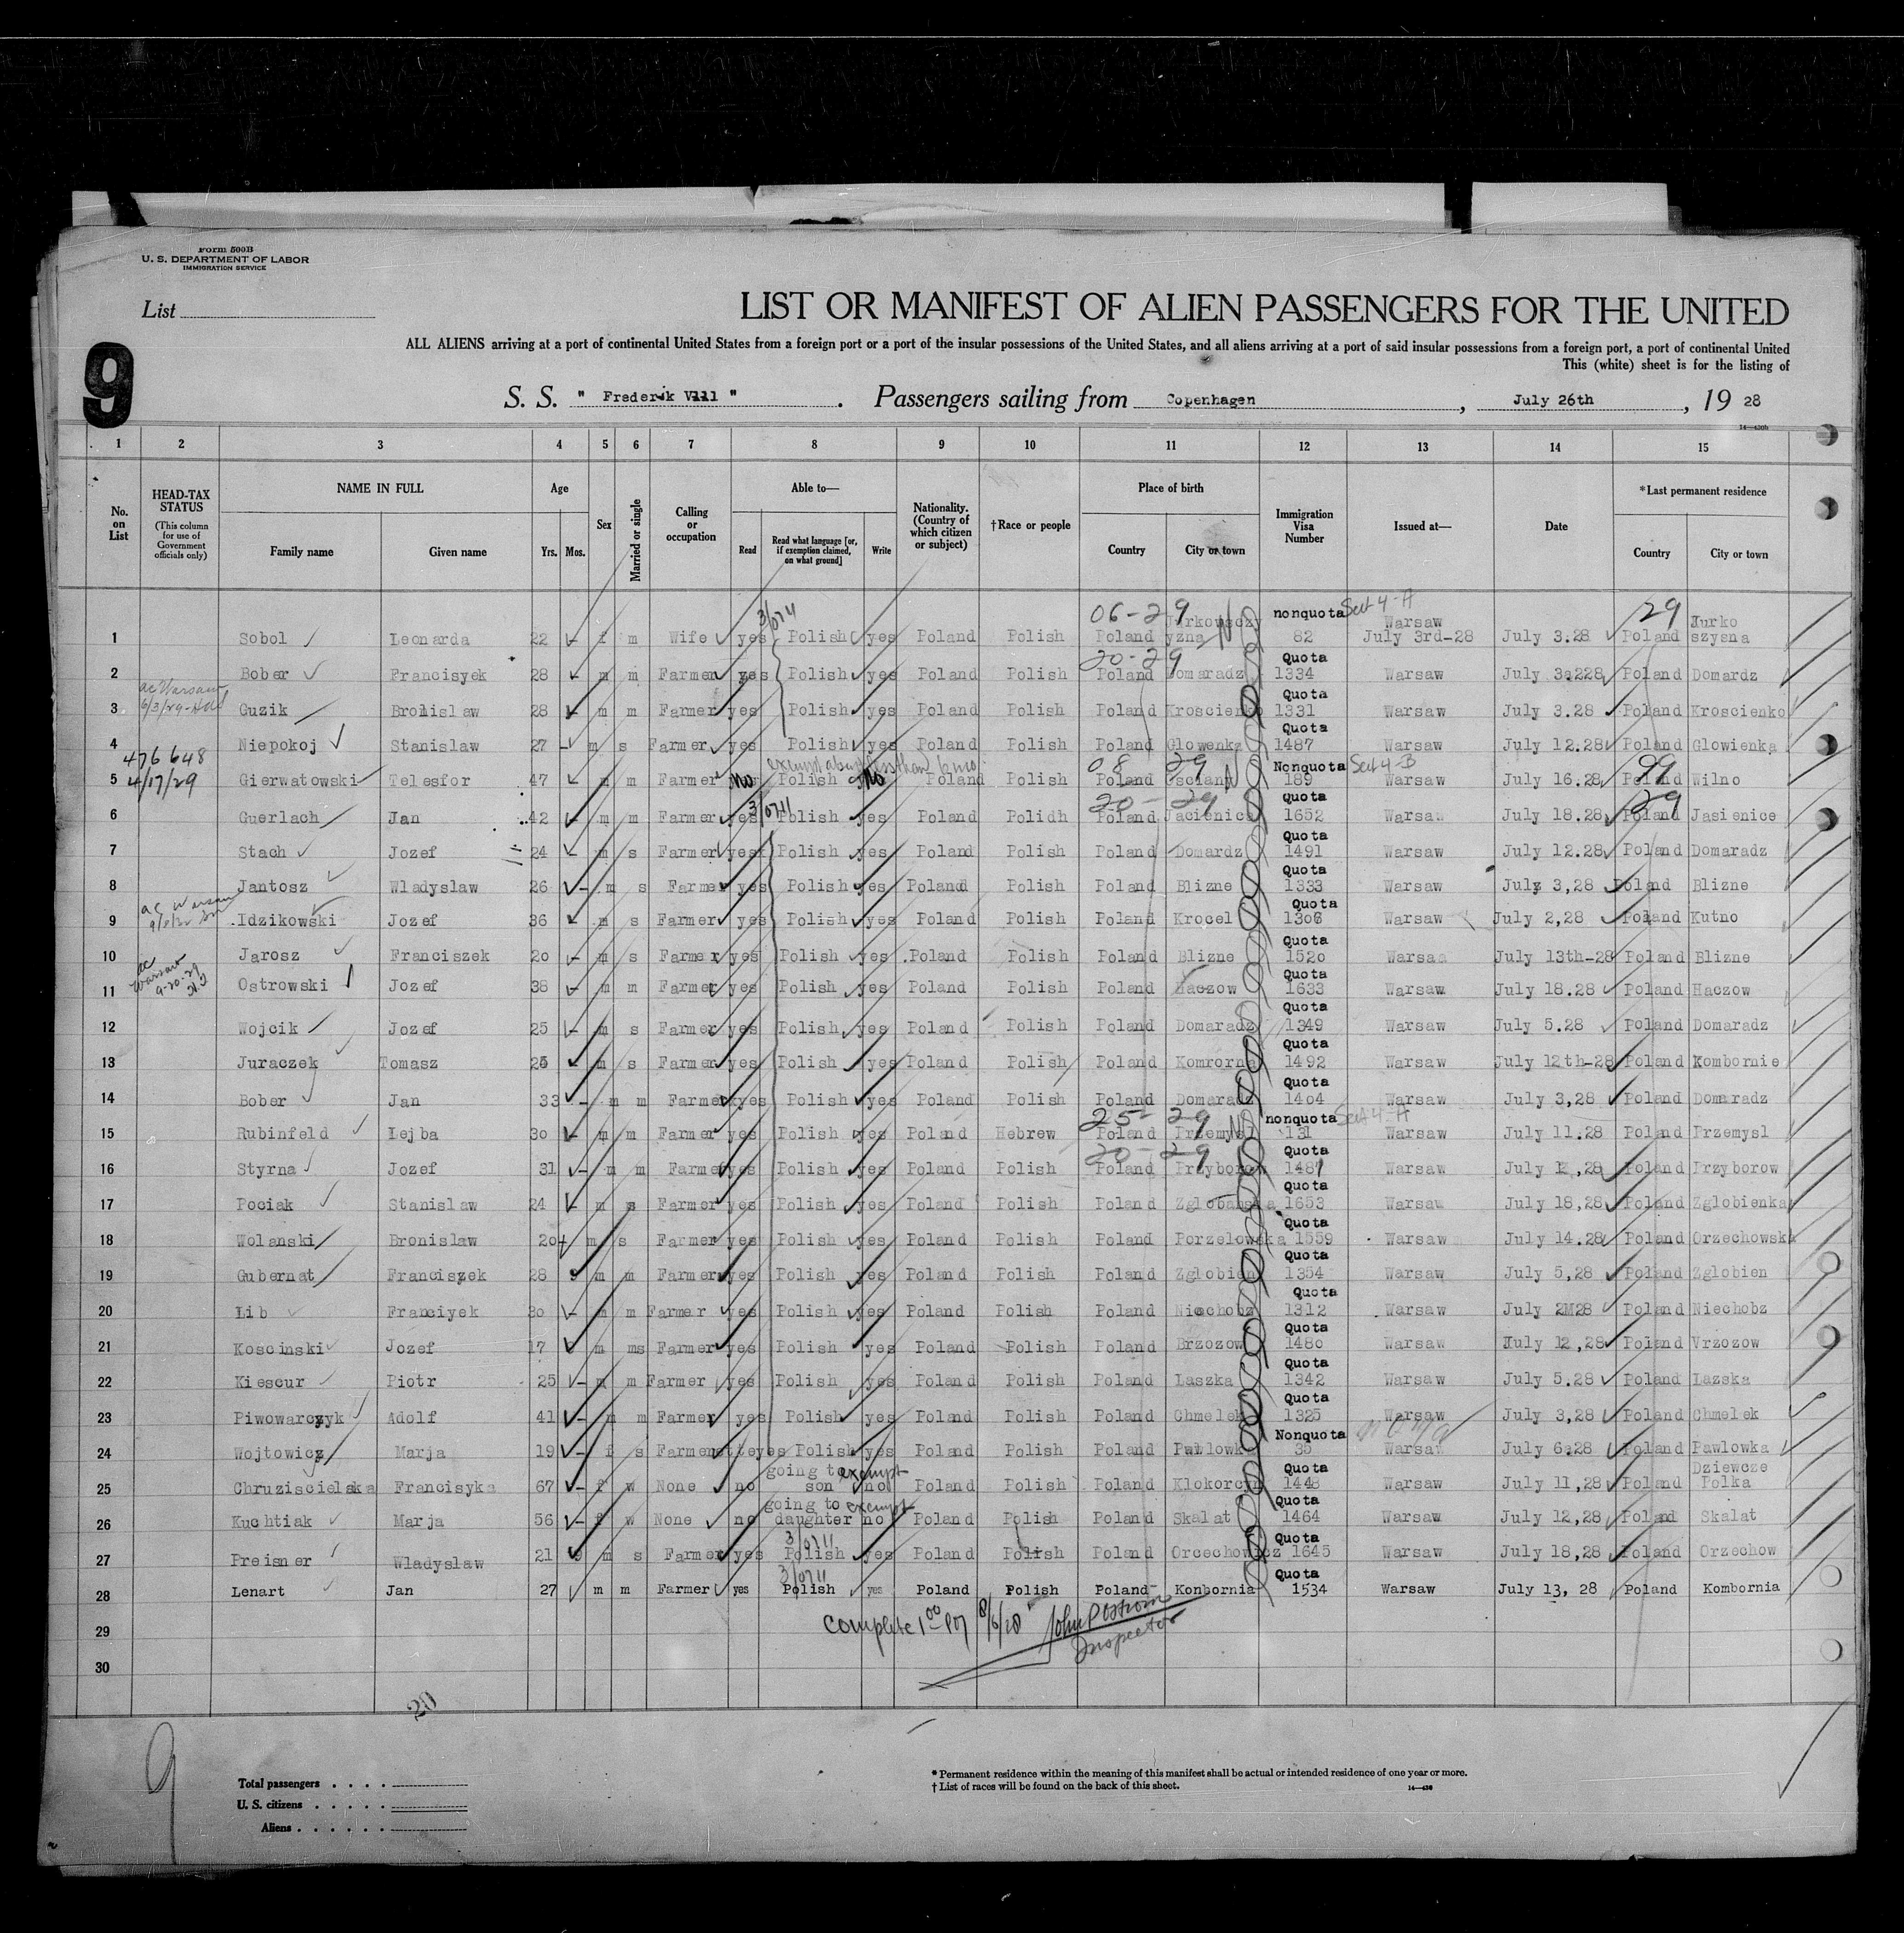 Form 500B
U. S. DEPARTMENT OF LABOR
IMMIGRATION SERVICE
List
LIST OR MANIFEST OF ALIEN PASSENGERS FOR THE UNITED
ALL ALIENS arriving at a port of continental United States from a foreign port or a port of the insular possessions of the United States, and all aliens arriving at a port of said insular possessions from a foreign port, a port of continental United
This (white) sheet is for the listing of
9
S. S. " Frederik Vlll " . Passengers sailing from Copenhagen , July 26th , 19 28
14—430b
1 2 3 4 5 6 7 8 9 10 11 12 13 14 15
No. on List
HEAD-TAX STATUS (This column for use of Government officials only)
NAME IN FULL Family name Given name
Age Yrs. Mos.
Sex
Married or single
Calling or occupation
Able to— Read Read what language [or, if exemption claimed, on what ground] Write
Nationality. (Country of which citizen or subject)
†Race or people
Place of birth Country City or town
Immigration Visa Number
Issued at—
Date
*Last permanent residence Country City or town
06-29 Jurkowsczy nonquota Sect 4-A Warsaw 29 Jurko
1 Sobol Leonarda 22 f m Wife yes Polish yes Poland Polish Poland yzna N 82 July 3rd-28 July 3.28 Poland szysna
20-29 Quota
2 Bober Francisyek 28 m m Farmer yes Polish yes Poland Polish Poland Domaradz 1334 Warsaw July 3a228 Poland Domardz
ac Warsaw Quota
3 6/3/29 Guzik Bronislaw 28 m m Farmer yes Polish yes Poland Polish Poland Kroscienko 1331 Warsaw July 3.28 Poland Kroscienko
Quota
4 Niepokoj Stanislaw 27 m s Farmer yes Polish yes Poland Polish Poland Glowenka 1487 Warsaw July 12.28 Poland Glowienka
476648 08 29 Nonquota Sect 4-B 99
5 4/17/29 Gierwatowski Telesfor 47 m m Farmer No Polish No Poland Polish Poland N 189 Warsaw July 16.28 Poland Wilno
20-29 Quota 29
6 Guerlach Jan 42 m m Farmer yes Polish yes Poland Polidh Poland Jacienice 1652 Warsaw July 18.28 Poland Jasienice
Quota
7 Stach Jozef 24 m s Farmer yes Polish yes Poland Polish Poland Domardz 1491 Warsaw July 12.28 Poland Domaradz
Quota
8 Jantosz Wladyslaw 26 m s Farmer yes Polish yes Poland Polish Poland Blizne 1333 Warsaw July 3,28 Poland Blizne
ac Warsaw Quota
9 Idzikowski Jozef 36 m s Farmer yes Polish yes Poland Polish Poland Krocel 1306 Warsaw July 2,28 Poland Kutno
Quota
10 Jarosz Franciszek 20 m s Farmer yes Polish yes Poland Polish Poland Blizne 1520 Warsaa July 13th-28 Poland Blizne
ac Warsaw 9-20-29 Quota
11 Ostrowski Jozef 38 m m Farmer yes Polish yes Poland Polish Poland Haczow 1633 Warsaw July 18.28 Poland Haczow
Quota
12 Wojcik Jozef 25 m s Farmer yes Polish yes Poland Polish Poland Domaradz 1349 Warsaw July 5.28 Poland Domaradz
Quota
13 Juraczek Tomasz m s Farmer yes Polish yes Poland Polish Poland Komrorne 1492 Warsaw July 12th-28 Poland Kombornie
Quota
14 Bober Jan 33 m m Farmer yes Polish yes Poland Polish Poland Domaradz 1404 Warsaw July 3,28 Poland Domaradz
25-29 nonquota Sect 4-A
15 Rubinfeld Lejba 30 m m Farmer yes Polish yes Poland Hebrew Poland Przemysl N 131 Warsaw July 11.28 Poland Przemysl
20-29 Quota
16 Styrna Jozef 31 m m Farmer yes Polish yes Poland Polish Poland Przyborow 1487 Warsaw July 12,28 Poland Przyborow
Quota
17 Pociak Stanislaw 24 m s Farmer yes Polish yes Poland Polish Poland Zglobanska 1653 Warsaw July 18,28 Poland Zglobienka
Quota
18 Wolanski Bronislaw 20 m s Farmer yes Polish yes Poland Polish Poland Porzelowska 1559 Warsaw July 14.28 Poland Orzechowska
Quota
19 Gubernat Franciszek 28 9 m m Farmer yes Polish yes Poland Polish Poland Zglobien 1354 Warsaw July 5,28 Poland Zglobien
Quota
20 Lib Franciyek 30 m m Farmer yes Polish yes Poland Polish Poland Niechobz 1312 Warsaw July 2M28 Poland Niechobz
Quota
21 Koscinski Jozef 17 m ms Farmer yes Polish yes Poland Polish Poland Brzozow 1480 Warsaw July 12,28 Poland Vrzozow
Quota
22 Kiescur Piotr 25 m m Farmer yes Polish yes Poland Polish Poland Laszka 1342 Warsaw July 5.28 Poland Lazska
Quota
23 Piwowarczyk Adolf 41 m m Farmer yes Polish yes Poland Polish Poland Chmelek 1325 Warsaw July 3,28 Poland Chmelek
Nonquota
24 Wojtowicz Marja 19 f s Farmerette yes Polish yes Poland Polish Poland Pawlowk 35 Warsaw July 6.28 Poland Pawlowka
going to exempt Quota Dziewcze
25 Chruziscielska Francisyka 67 f w None no son no Poland Polish Poland Klokorcyn 1448 Warsaw July 11,28 Poland Polka
going to exempt Quota
26 Kuchtiak Marja 56 f w None no daughter no Poland Polish Poland Skalat 1464 Warsaw July 12,28 Poland Skalat
Quota
27 Preisner Wladyslaw 21 9 m s Farmer yes Polish yes Poland Polish Poland Orcechowicz 1645 Warsaw July 18,28 Poland Orzechow
Quota
28 Lenart Jan 27 m m Farmer yes Polish yes Poland Polish Poland Konbornia 1534 Warsaw July 13, 28 Poland Kombornia
29 Complete 8/6/28 John P Ostrom
Inspector
30
20
9
Total passengers . . . .
U. S. citizens . . . . .
Aliens . . . . . .
* Permanent residence within the meaning of this manifest shall be actual or intended residence of one year or more.
† List of races will be found on the back of this sheet.
14—430